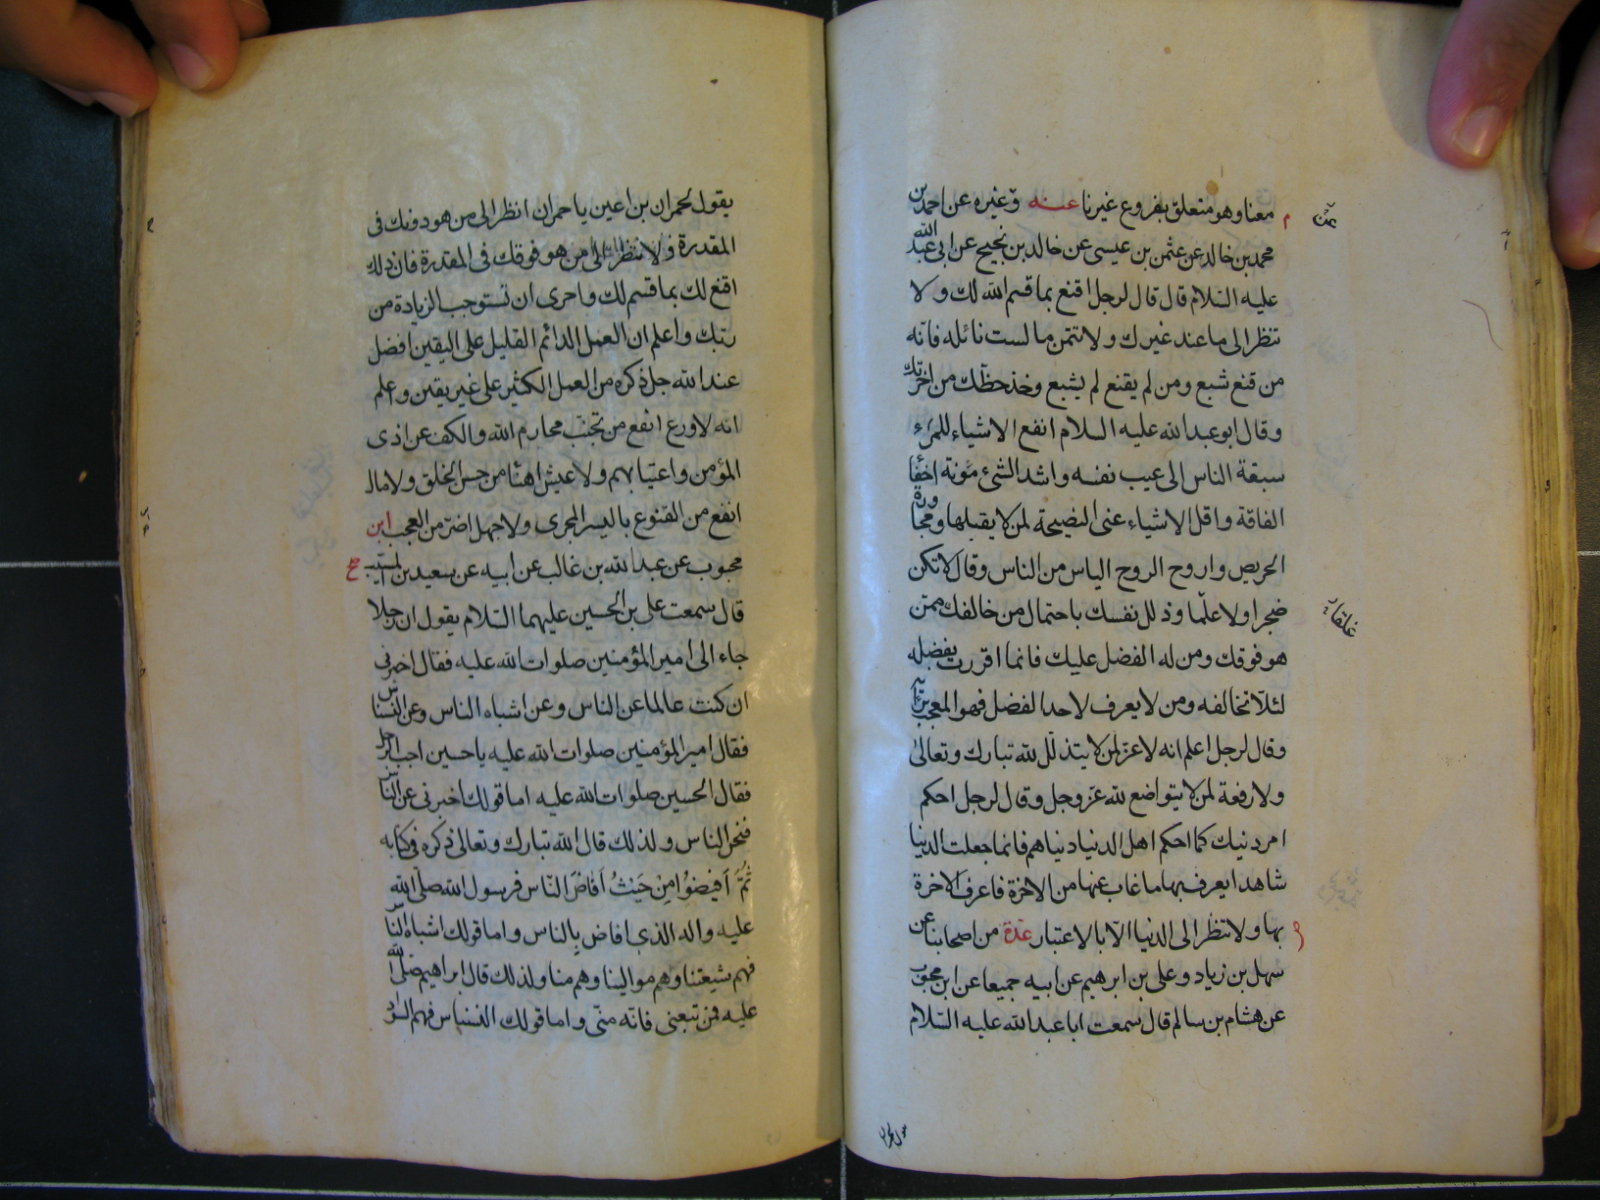 معنا وهو متعلق بفروع غيرنا عنه وغيره عن احمد بن
محمد بن خالد عن عثمن بن عيسى عن خالد بن نجيح عن ابى عبد الله
عليه السلام قال قال لرجل اقنع بما قسم الله لك ولا
تنظر الى ما عند غيرك ولا تتمن ما لست نائله فانه
من قنع شبع ومن لم يقنع لم يشبع وخذ حظك من اخرتك
وقال ابو عبد الله عليه السلام انفع الاشياء للمرء
سبقة الناس الى عيب نفسه واشد الشئ مؤنة اخفا
الفاقة واقل الاشياء غنى النصيحة لمن لا يقبلها ومجاورة
الحريص واروح الروح الياس من الناس وقال لا تكن
ضجرا ولا غلقا وذلل نفسك باحتمال من خالفك ممن
هو فوقك ومن له الفضل عليك فانما اقررت بفضله
لئلا تخالفه ومن لا يعرف لاحد الفضل فهو المعجب برأيه
وقال لرجل اعلم انه لا عز لمن لا يتذلل لله تبارك وتعالى
ولا رفعة لمن لا يتواضع لله عز وجل وقال لرجل احكم
امر دنيك كما احكم اهل الدنيا دنياهم فانما جعلت الدنيا
شاهدا يعرف بها ما غاب عنها من الاخرة فاعرف الاخرة
بها ولا تنظر الى الدنيا الا بالاعتبار عدة من اصحابنا عن
سهل بن زياد وعلى بن ابرهيم عن ابيه جميعا عن ابن محبوب
عن هشام بن سالم قال سمعت ابا عبد الله عليه السلام
يقول لحمران
يقول لحمران بن اعين يا حمران انظر الى من هو دونك فى
المقدرة ولا تنظر الى من هو فوقك فى المقدرة فان ذلك
اقنع لك بما قسم لك واحرى ان تستوجب الزيادة من
ربك واعلم ان العمل الدائم القليل على اليقين افضل
عند الله جل ذكره من العمل الكثير على غير يقين واعلم
انه لا ورع انفع من تجنب محارم الله والكف عن اذى
المؤمن واغتيابهم ولا عيش اهنا من حسن الخلق ولا مال
انفع من القنوع باليسر المجزى ولا جهل اضر من العجب ابن
محبوب عن عبد الله بن غالب عن ابيه عن سعيد بن المسيب
قال سمعت على بن الحسين عليهما السلام يقول ان رجلا
جاء الى امير المؤمنين صلوات الله عليه فقال اخبرنى
ان كنت عالما عن الناس وعن اشباه الناس وعن النسناس
فقال امير المؤمنين صلوات الله عليه يا حسين اجب الرجل
فقال الحسين صلوات الله عليه اما قولك اخبرنى عن الناس
فنحن الناس ولذلك قال الله تبارك وتعالى ذكره فى كتابه
ثُمَّ اَفيضُوا مِنْ حَيْثُ اَفَاضَ النَّاس فرسول الله صلى الله
عليه واله الذى افاض بالناس واما قولك اشباه الناس
فهم شيعتنا وهم موالينا وهم منا ولذلك قال ابراهيم صلى الله
عليه فمن تبعنى فانه منى واما قولك النسناس فهم السواد